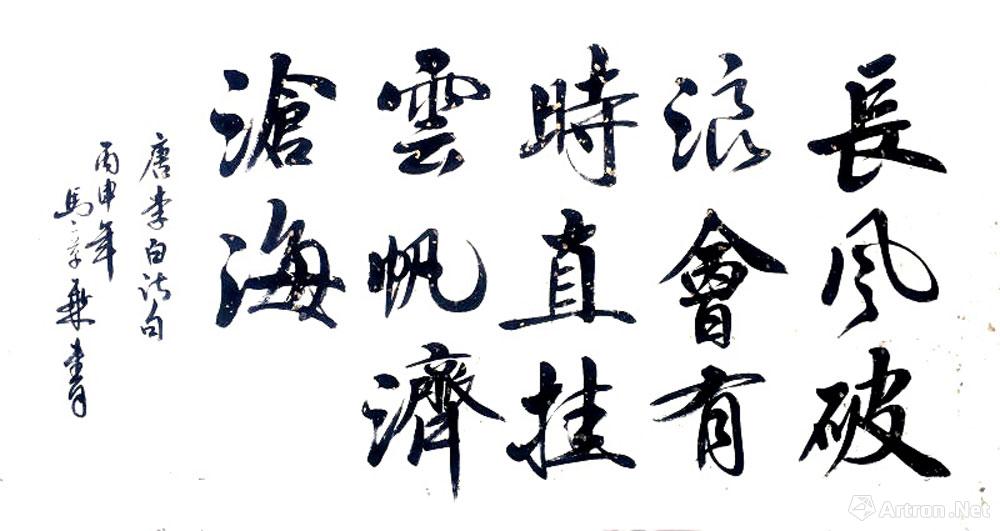 長風破
浪會有
時直挂
雲帆濟
滄海
唐李白詩句
丙申年
馬
書
Artron.Net